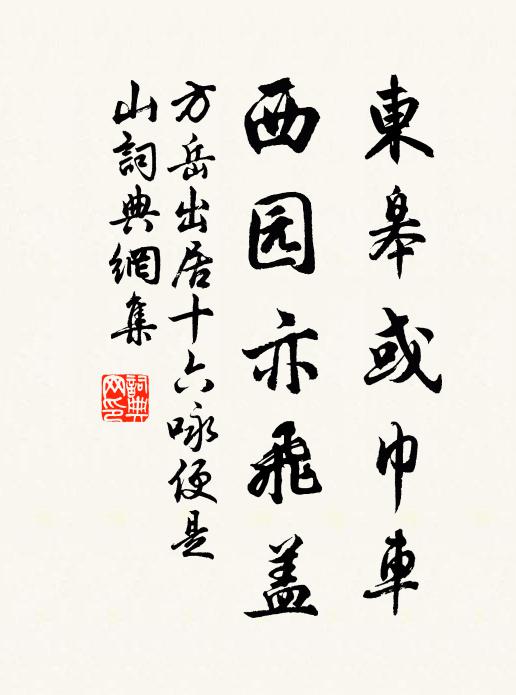 東皋或巾車
西园亦飛盖
方岳出居十六咏便是
山詞典網集
詞典网印